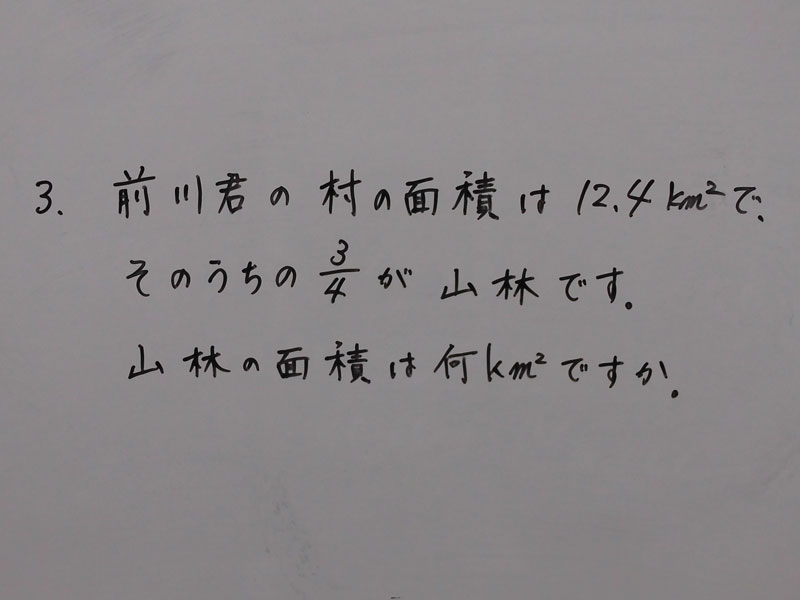 3. 前川君の村の面積は12.4km²で、
そのうちの3/4が山林です。
山林の面積は何km²ですか。